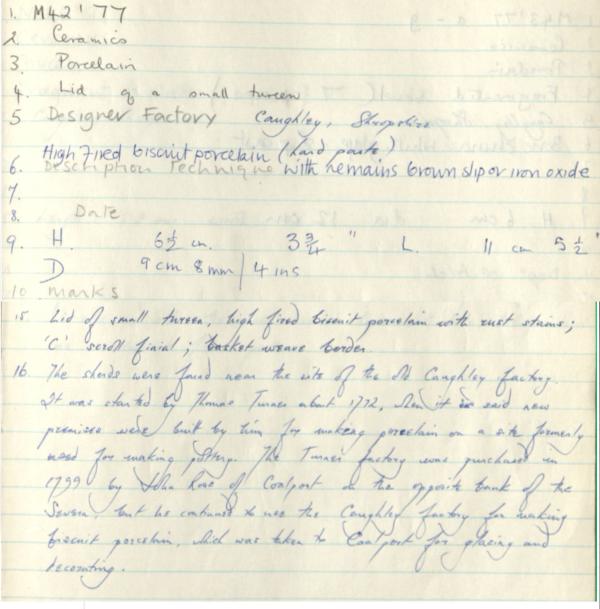 1. M42'77
2. Ceramics
3. Porcelain
4. Lid of a small tureen
5 Designer Factory Caughley, Shropshire
High fired biscuit porcelain (hard paste)
6. Description Technique with remains brown slip or iron oxide
7.
8. Date
9. H. 6½ cm. 3¾ " L. 11 cm 5½ "
D 9 cm 8 mm / 4 ins
10 marks
15 Lid of small tureen, high fired biscuit porcelain with rust stains;
'C' scroll finial; basket weave border.
16. The sherds were found near the site of the old Caughley factory.
It was started by Thomas Turner about 1772, when it is said new
premises were built by him for making porcelain on a site formerly
used for making pottery. The Turner factory was purchased in
1799 by John Rose of Coalport on the opposite bank of the
Severn, but he continued to use the Caughley factory for making
biscuit porcelain, which was taken to Coalport for glazing and
decorating.